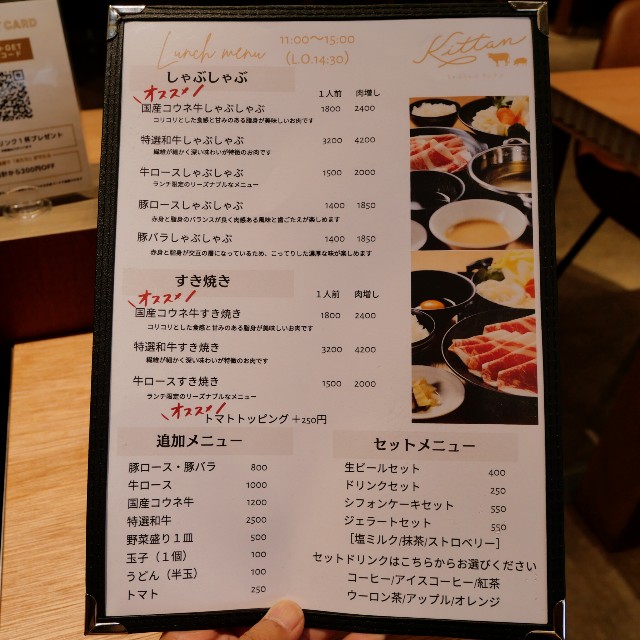 CARD
Lunch menu
11:00～15:00
(L.O.14:30)
Kittan
しゃぶしゃぶ
オススメ！
1人前 肉増し
国産コウネ牛しゃぶしゃぶ 1800 2400
コリコリとした食感と甘みのある脂身が美味しいお肉です
特選和牛しゃぶしゃぶ 3200 4200
繊維が細かく深い味わいが特徴のお肉です
牛ロースしゃぶしゃぶ 1500 2000
ランチ限定のリーズナブルなメニュー
豚ロースしゃぶしゃぶ 1400 1850
赤身と脂身のバランスが良く肉感ある風味と歯ごたえが楽しめます
豚バラしゃぶしゃぶ 1400 1850
赤身と脂身が交互の層になっているため、こってりした濃厚な味が楽しめます
すき焼き
オススメ！
1人前 肉増し
国産コウネ牛すき焼き 1800 2400
コリコリとした食感と甘みのある脂身が美味しいお肉です
特選和牛すき焼き 3200 4200
繊維が細かく深い味わいが特徴のお肉です
牛ロースすき焼き 1500 2000
ランチ限定のリーズナブルなメニュー
オススメ！
トマトトッピング ＋250円
追加メニュー
豚ロース・豚バラ 800
牛ロース 1000
国産コウネ牛 1200
特選和牛 2500
野菜盛り１皿 500
玉子（１個） 100
うどん（半玉） 100
トマト 250
セットメニュー
生ビールセット 400
ドリンクセット 250
シフォンケーキセット 550
ジェラートセット 550
［塩ミルク/抹茶/ストロベリー］
セットドリンクはこちらからお選びください
コーヒー/アイスコーヒー/紅茶
ウーロン茶/アップル/オレンジ